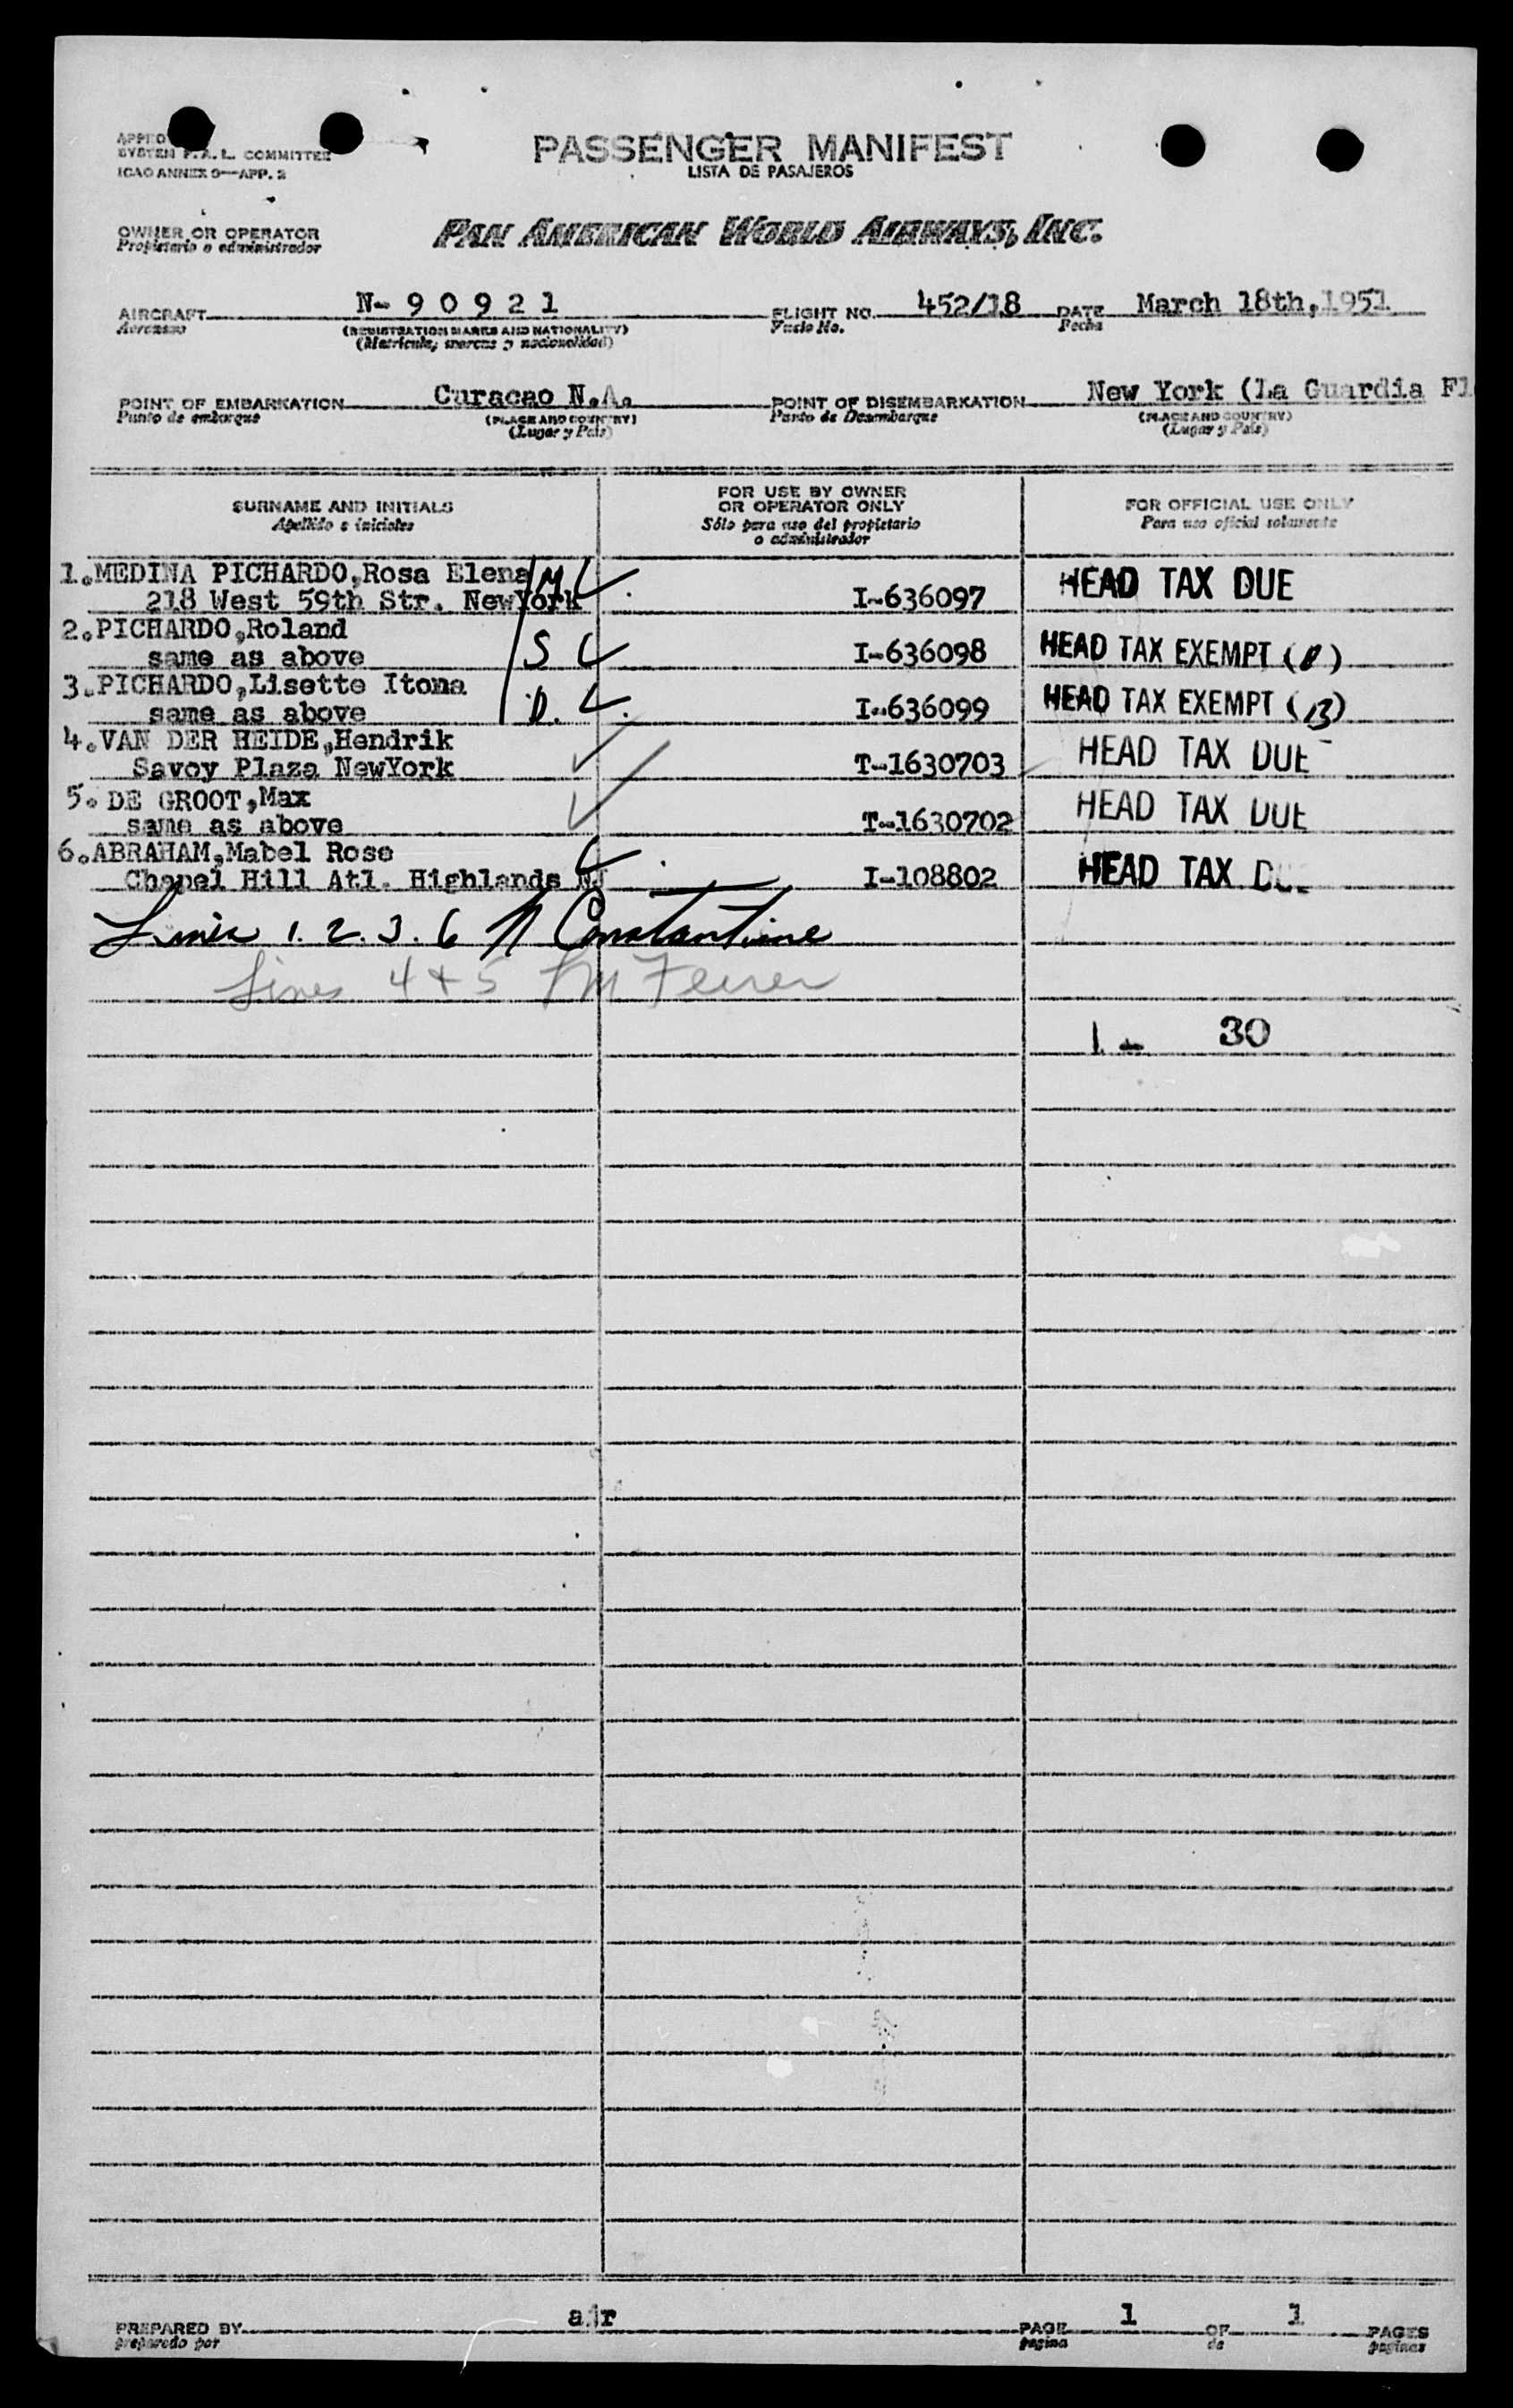 SYSTEM F.A.L. COMMITTEE
ICAO ANNEX 9—APP. 2
PASSENGER MANIFEST
LISTA DE PASAJEROS
OWNER OR OPERATOR
Propietario o administrador
PAN AMERICAN WORLD AIRWAYS, INC.
AIRCRAFT N- 9 0 9 2 1 FLIGHT NO. 452/18 DATE March 18th, 1951
Aeronave (REGISTRATION MARKS AND NATIONALITY) Vuelo No. Fecha
(Matricula, marcas y nacionalidad)
POINT OF EMBARKATION Curacao N.A. POINT OF DISEMBARKATION New York (La Guardia Fl
Punto de embarque (PLACE AND COUNTRY) Punto de Desembarque (PLACE AND COUNTRY)
(Lugar y País) (Lugar y País)
SURNAME AND INITIALS FOR USE BY OWNER OR OPERATOR ONLY FOR OFFICIAL USE ONLY
Apellido e iniciales Sólo para uso del propietario o administrador Para uso oficial solamente
1.MEDINA PICHARDO,Rosa Elena M HEAD TAX DUE
218 West 59th Str. NewYork I-636097
2.PICHARDO,Roland
same as above S I-636098 HEAD TAX EXEMPT
3.PICHARDO,Lisette Itona
same as above D. I-636099 HEAD TAX EXEMPT (B)
4.VAN DER HEIDE,Hendrik
Savoy Plaza NewYork T-1630703 HEAD TAX DUE
5. DE GROOT,Max
same as above T-1630702 HEAD TAX DUE
6.ABRAHAM,Mabel Rose
Chapel Hill Atl. Highlands NJ I-108802 HEAD TAX DUE
Lines 1. 2. 3. 6 N Constantine
Lines 4 + 5
1 - 30
PREPARED BY ajr PAGE 1 OF 1 PAGES
preparado por pagina de paginas